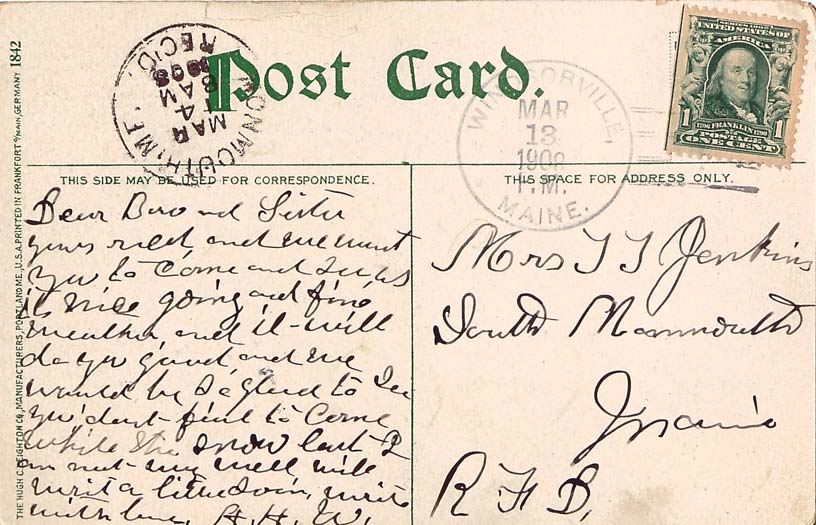 Post Card.
MONMOUTH, ME.
MAR
14
8 AM
1908
REC'D.
WINDSORVILLE,
MAR
13
1908
P.M.
MAINE.
SERIES 1902
UNITED STATES OF
AMERICA
1706 FRANKLIN 1790
POSTAGE
1 ONE CENT 1
THE HUGH C. LEIGHTON CO., MANUFACTURERS, PORTLAND ME., U.S.A. PRINTED IN FRANKFORT o/MAIN, GERMANY 1842
THIS SIDE MAY BE USED FOR CORRESPONDENCE.
Dear Bro and Sister
yours recd and we want
you to come and see us
its nice going and fine
weather and it will
do you good and we
would be so glad to see
you dont fail to come
while the snow last I
am not very well will
writ a little soon, write
with love, H. H. W.
THIS SPACE FOR ADDRESS ONLY.
Mrs T J Jenkins
South Monmouth
Maine
R F D,